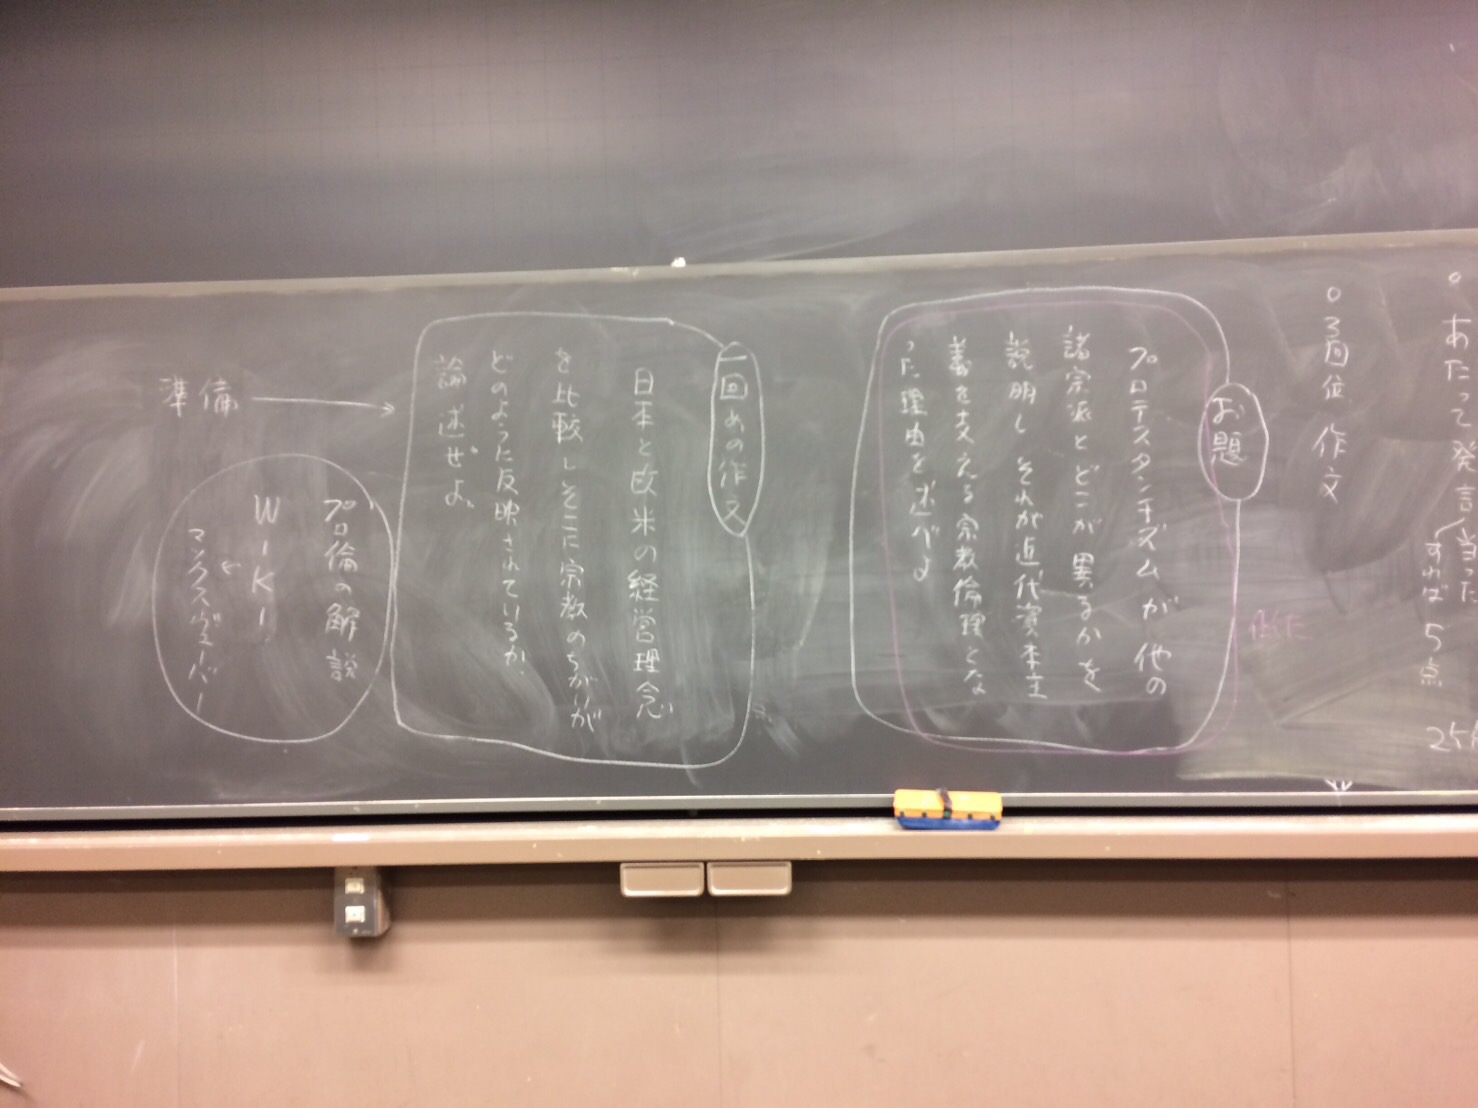 。あたって発言
当った
すれば5点
。3回位作文
お題
プロテスタンチズムが他の
諸宗派とどこが異るかを
説明し それが近代資本主
義を支える宗教倫理とな
った理由を述べよ
一回めの作文
日本と欧米の経営理念
を比較しそこに宗教のちがいが
どのように反映されているか
論述せよ。
準備→
プロ倫の解説
WiKi
マックスヴェーバー